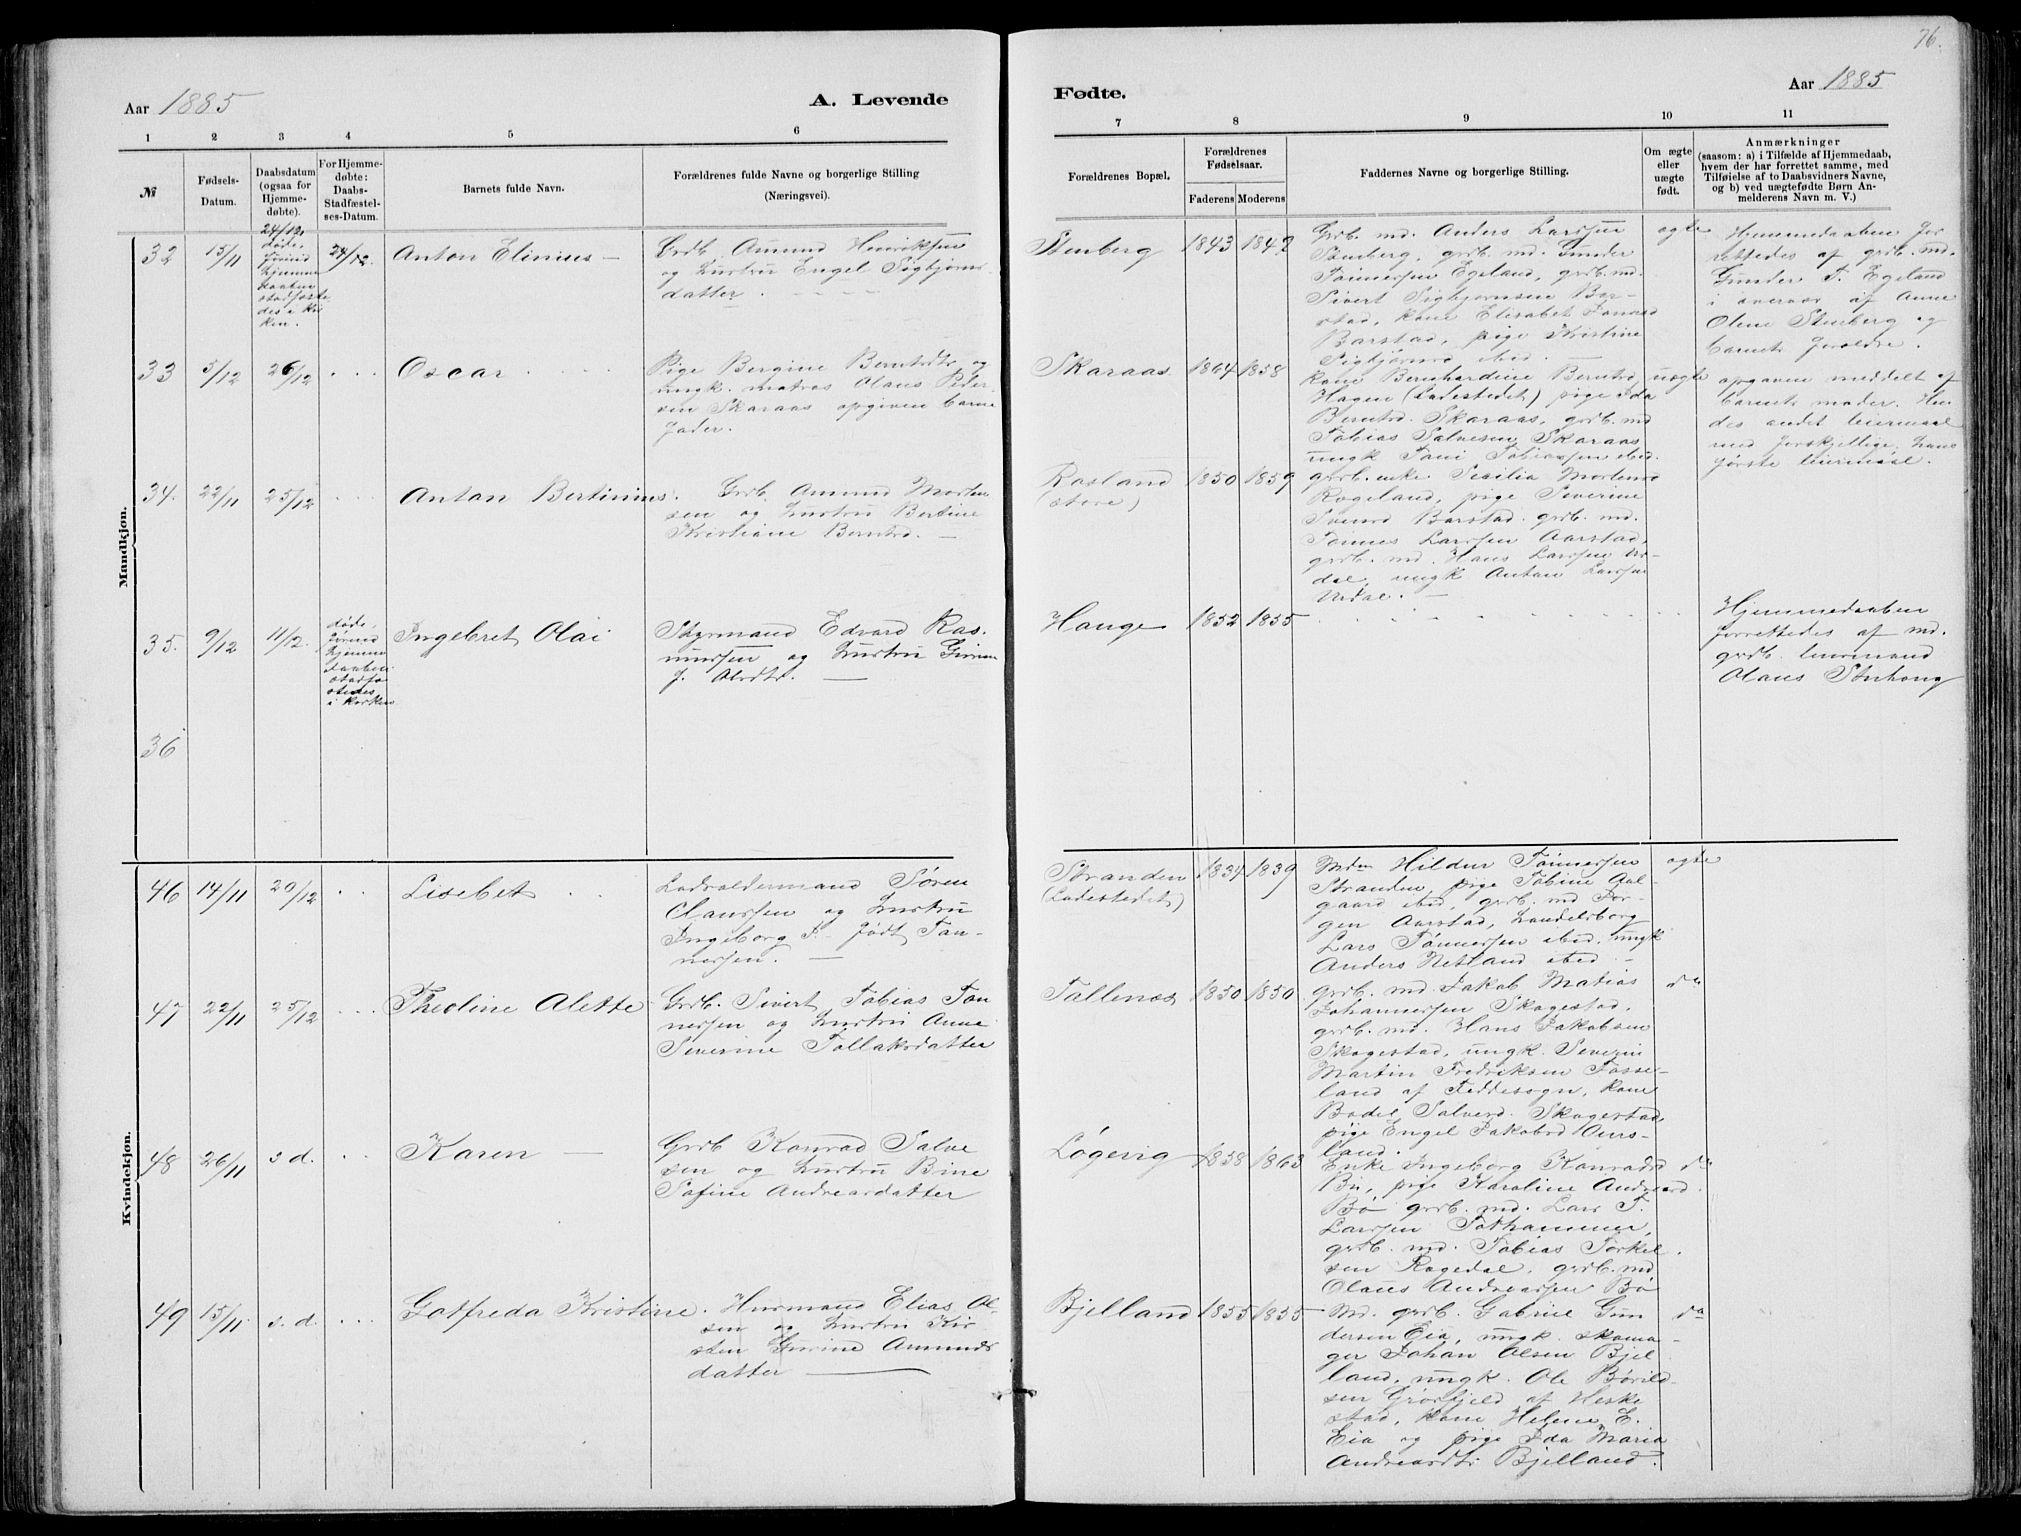 76.
Aar 1885
A. Levende
Fødte.
Aar 1885
1 2 3 4 5 6
7 8 9 10 11
№
Fødsels-
Datum.
Daabsdatum
(ogsaa for
Hjemme-
døbte).
For Hjemme-
døbte:
Daabs-
Stadfæstel-
ses-Datum.
Barnets fulde Navn.
Forældrenes fulde Navne og borgerlige Stilling
(Næringsvei).
Forældrenes Bopæl.
Forældrenes
Fødselsaar.
Faderens Moderens
Faddernes Navne og borgerlige Stilling.
Om ægte
eller
uægte
født.
Anmærkninger
(saasom: a) i Tilfælde af Hjemmedaab,
hvem der har forrettet samme, med
Tilføielse af to Daabsvidners Navne,
og b) ved uægtefødte Børn An-
melderens Navn m. V.)
Mandkjøn.
32
15/11
24/12
døde,
førend
hjemme
daaben
stadfæste
des i Kir
ken.
24/12.
Anton Elinius —
Grdb. Amund Henriksen
og hustru Engel Sigbjørns-
datter.
Stenberg
1843 1842
Grb. md. Anders Larssen
Stenberg, grb. md. Gunder
Tønnessen Egeland, grb. md.
Sivert Sigbjørnsen Bar-
stad, kone Elisabet
Barstad, pige Kristine
Sigbjørnsd ibid. —
ægte
Hjemmedaaben for
rettedes af grb. md.
Gunder T. Egeland
i overvær af Anne
Olene Stenberg og
barnets forældre.
33
5/12
26/12
Oscar
Pige Bergine Berntsdtr og
ungk. matros Olaus Peder
sen Skaraas opgiven barne
fader.
Skaraas
1864 1858
kone Bernhardine Berntsd
Hagen (Ladestedet) pige Ida
Berntsd. Skaraas, grb. md
Tobias Salvesen Skaraas
ungk Tobiassen ibid.
uægte
opgaven meddelt af
barnets moder. Hen
des andet leiermaal
med forskjellige, hans
første leiermaal.
34.
22/11
25/12
Anton Bertinius.
Grb. Amund Morten
sen og hustru Bertine
Kristiane Berntsd. —
Rosland
(store)
1850 1859
grb. enke Secilia Mortensd
Rogeland, pige Severine
Svensd Barstad. grb. md.
Tønnes Larssen Aarstad,
grb. md. Hans Larssen Ur-
dal, ungk Anton Larssen
Urdal. —
35.
9/12
11/12.
døde,
førend
hjemme
daaben
stadfæ
stedes
i kirken
Ingebret Olai
Styrmand Edvard Ras.
mussen og hustru
f. Olsdtr. —
Hauge
1852 1855
Hjemmedaaben
forrettedes af md.
grdb.
Olaus
36
Kvindekjøn.
46
14/11
20/12
Lisebet
Lodsoldermand Søren
Clanssen og hustru
Ingeborg T. født Tøn-
nessen. —
Stranden
(Ladestedet)
1834 1839
Mdm Hildur Tønnessen
Stranden, pige Tobine Aal-
gaard ibid, grb. md Jør-
gen Aarstad, handelsborg
Lars Tønnessen ibid. ungk
Anders Netland ibid —
ægte
47
22/11
25/12
Theoline Alette
Grb. Sivert Tobias Tøn
nessen og hustru Anne
Severine Tollaksdatter
Tallenæs
1850 1850
grb. md. Jakob Matias
Johannessen Skogestad,
grb. md. Hans Jakobsen
Skogestad, ungk. Severin
Martin Fredriksen Fosse-
land af Feddesogn, kone
Bodel Salvesd. Skogestad,
pige Engel Jakobsd Ours-
land.
do
48
26/11
s d.
Karen —
Grdb Konrad Salve
sen og hustru Bine
Sofine Andreasdatter
Løgevig
1858 1863
Enke Ingeborg Konradsd
Bø, pige Karoline Andreasd.
Bø grb. md. Lars T.
Larssen Tothammer,
grb. md. Tobias Torkel.
sen Rogedal, grb. md
Olaus Andreassen Bø
do
49
15/11
s. d.
Gotfreda Kristine.
Husmand Elias Ol-
sen og hustru Kir
sten Gurine Amunds
datter —
Bjelland
1855 1855
Md. grb. Gabriel Gun
dersen Eia, ungk. skoma-
ger Johan Olsen Bjel
land, ungk. Ole Børild-
sen Grøsfjeld af Heske
stad, kone Helene E.
Eia og pige Ida Maria
Andreasdtr Bjelland.
do